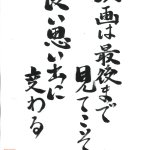 映画は最後まで
見てこそ
良い思い出に
変わる